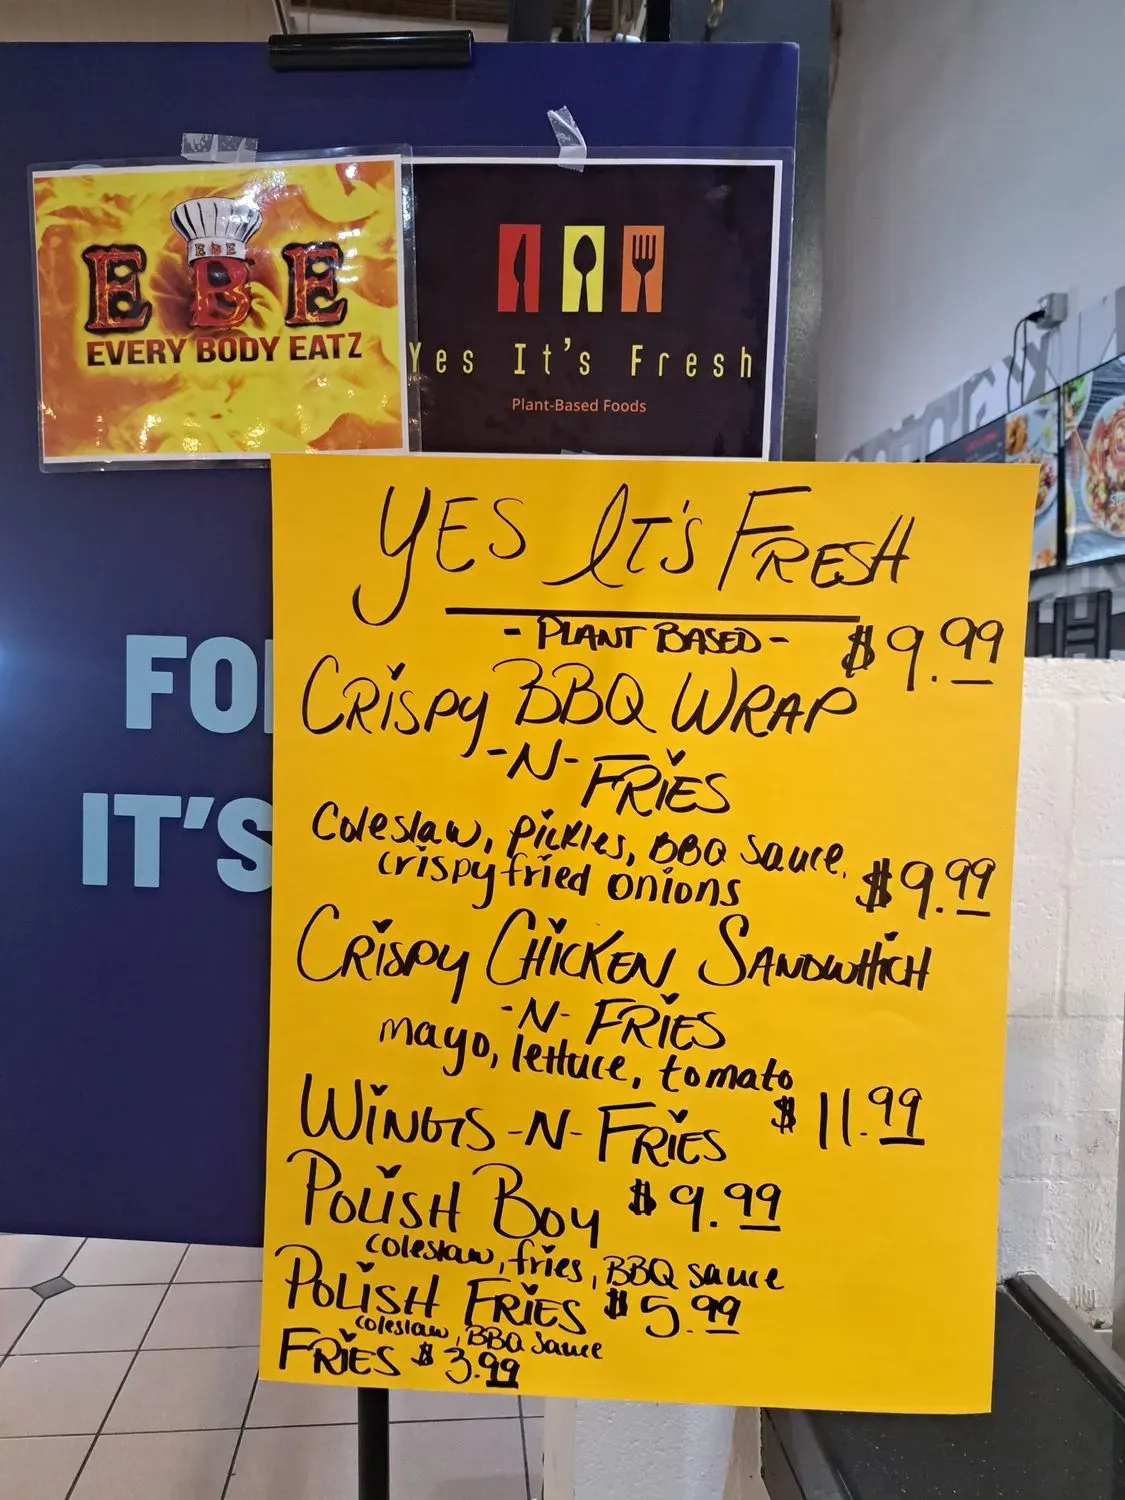 E B E
EBE
EVERY BODY EATZ
Yes It's Fresh
Plant-Based Foods
FO
IT'S
YES IT'S FRESH
- PLANT BASED -
$9.99
CRISPY BBQ WRAP
-N- FRIES
Coleslaw, pickles, BBQ sauce,
crispy fried onions
$9.99
CRISPY CHICKEN SANDWHICH
-N- FRIES
mayo, lettuce, tomato
WINGS -N- FRIES $11.99
POLISH BOY $9.99
coleslaw, fries, BBQ sauce
POLISH FRIES $5.99
coleslaw, BBQ sauce
FRIES $3.99